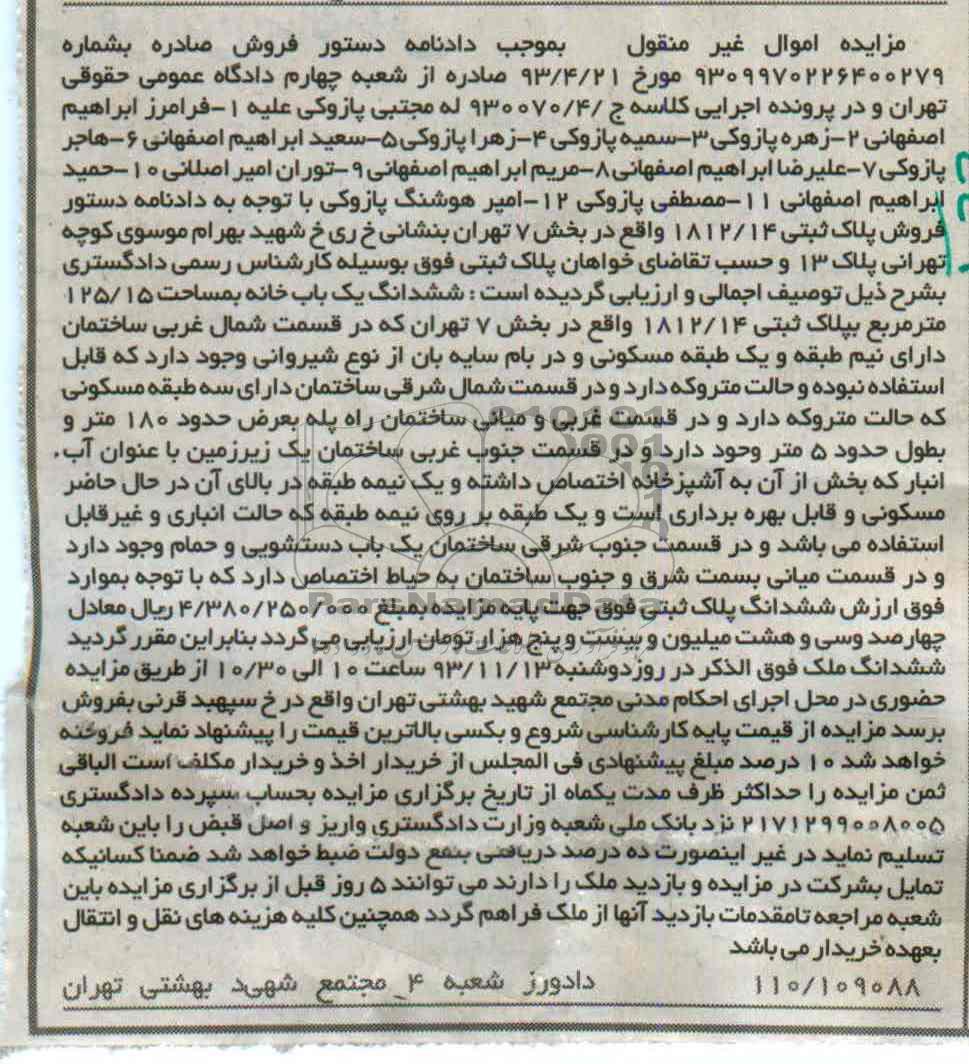 مزایده اموال غیر منقول بموجب دادنامه دستور فروش صادره بشماره
۹۳۰۹۹۷۰۲۲۶۴۰۰۲۷۹ مورخ ۹۳/۴/۲۱ صادره از شعبه چهارم دادگاه عمومی حقوقی
تهران و در پرونده اجرایی کلاسه ج /۹۳۰۰۷۰/۴ له مجتبی پازوکی علیه ۱-فرامرز ابراهیم
اصفهانی ۲-زهره پازوکی ۳-سمیه پازوکی ۴-زهرا پازوکی ۵-سعید ابراهیم اصفهانی ۶-هاجر
پازوکی ۷-علیرضا ابراهیم اصفهانی ۸-مریم ابراهیم اصفهانی ۹-توران امیر اصلانی ۱۰-حمید
ابراهیم اصفهانی ۱۱-مصطفی پازوکی ۱۲-امیر هوشنگ پازوکی با توجه به دادنامه دستور
فروش پلاک ثبتی ۱۸۱۲/۱۴ واقع در بخش ۷ تهران بنشانی خ ری خ شهید بهرام موسوی کوچه
تهرانی پلاک ۱۳ و حسب تقاضای خواهان پلاک ثبتی فوق بوسیله کارشناس رسمی دادگستری
بشرح ذیل توصیف اجمالی و ارزیابی گردیده است : ششدانگ یک باب خانه بمساحت ۱۲۵/۱۵
مترمربع بپلاک ثبتی ۱۸۱۲/۱۴ واقع در بخش ۷ تهران که در قسمت شمال غربی ساختمان
دارای نیم طبقه و یک طبقه مسکونی و در بام سایه بان از نوع شیروانی وجود دارد که قابل
استفاده نبوده و حالت متروکه دارد و در قسمت شمال شرقی ساختمان دارای سه طبقه مسکونی
که حالت متروکه دارد و در قسمت غربی و میانی ساختمان راه پله بعرض حدود ۱۸۰ متر و
بطول حدود ۵ متر وحود دارد و در قسمت جنوب غربی ساختمان یک زیرزمین با عنوان آب.
انبار که بخش از آن به آشپزخانه اختصاص داشته و یک نیمه طبقه در بالای آن در حال حاضر
مسکونی و قابل بهره برداری است و یک طبقه بر روی نیمه طبقه که حالت انباری و غیرقابل
استفاده می باشد و در قسمت جنوب شرقی ساختمان یک باب دستشویی و حمام وجود دارد
و در قسمت میانی بسمت شرق و جنوب ساختمان به حیاط اختصاص دارد که با توجه بموارد
فوق ارزش ششدانگ پلاک ثبتی فوق جهت پایه مزایده بمبلغ ۴/۳۸۰/۲۵۰/۰۰۰ ریال معادل
چهارصد وسی و هشت میلیون و بیست و پنج هزار تومان ارزیابی می گردد بنابراین مقرر گردید
ششدانگ ملک فوق الذکر در روز دوشنبه ۹۳/۱۱/۱۳ ساعت ۱۰ الی ۱۰/۳۰ از طریق مزایده
حضوری در محل اجرای احکام مدنی مجتمع شهید بهشتی تهران واقع در خ سپهبد قرنی بفروش
برسد مزایده از قیمت پایه کارشناسی شروع و بکسی بالاترین قیمت را پیشنهاد نماید فروخته
خواهد شد ۱۰ درصد مبلغ پیشنهادی فی المجلس از خریدار اخذ و خریدار مکلف است الباقی
ثمن مزایده را حداکثر ظرف مدت یکماه از تاریخ برگزاری مزایده بحساب سپرده دادگستری
۲۱۷۱۲۹۹۰۰۸۰۰۵ نزد بانک ملی شعبه وزارت دادگستری واریز و اصل قبض را باین شعبه
تسلیم نماید در غیر اینصورت ده درصد دریافتی بنفع دولت ضبط خواهد شد ضمنا کسانیکه
تمایل بشرکت در مزایده و بازدید ملک را دارند می توانند ۵ روز قبل از برگزاری مزایده باین
شعبه مراجعه تامقدمات بازدید آنها از ملک فراهم گردد همچنین کلیه هزینه های نقل و انتقال
بعهده خریدار می باشد
۱۱۰/۱۰۹۰۸۸ دادورز شعبه ۴_مجتمع شهید بهشتی تهران
ParsNamadData